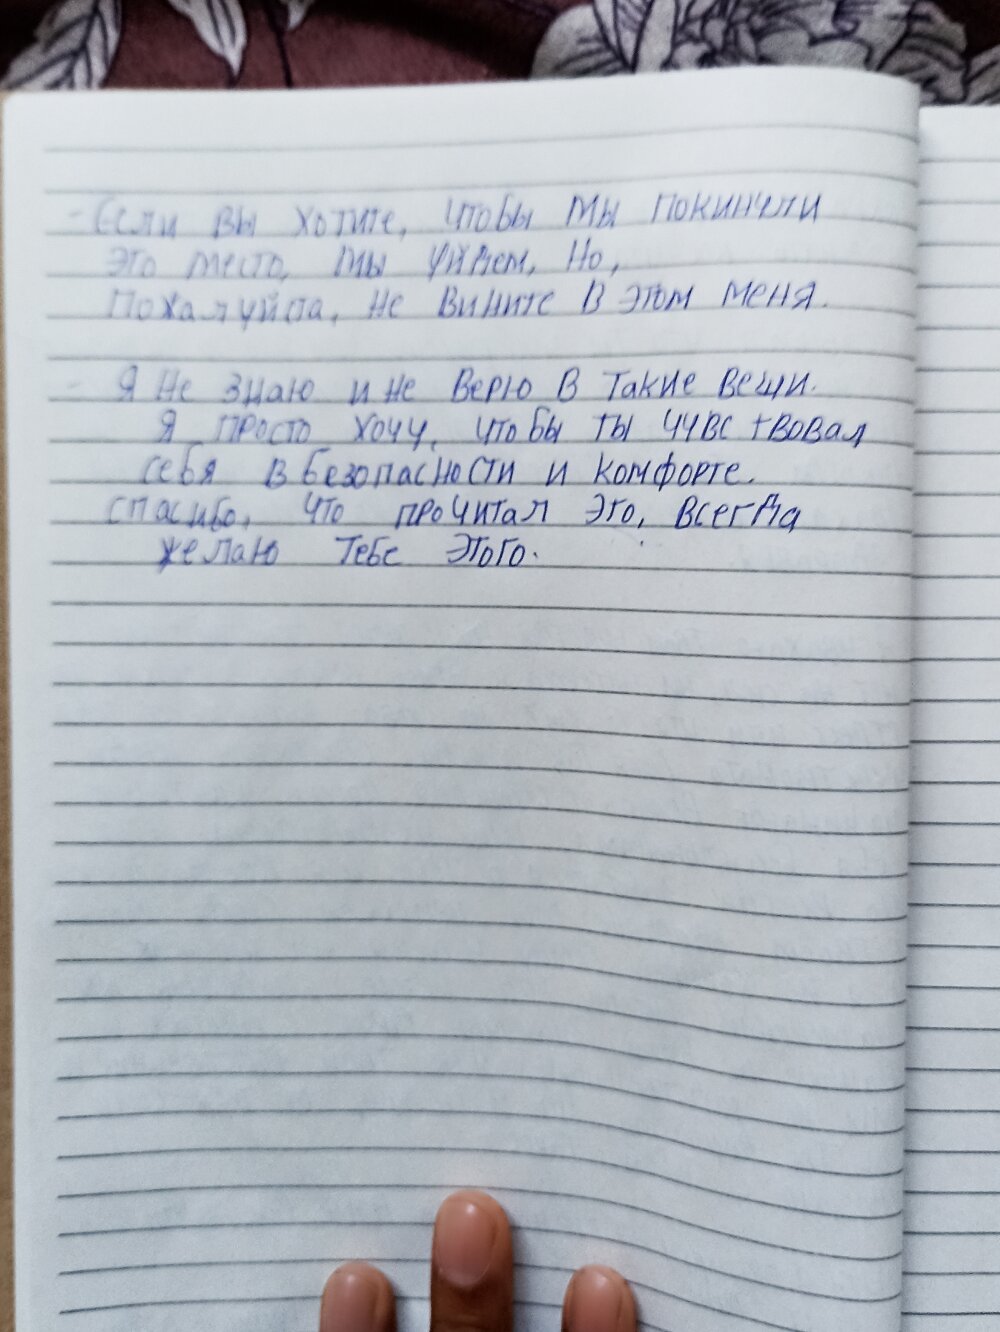 - Если вы хотите, чтобы мы покинули
это место, мы уйдем, но,
пожалуйста, не вините в этом меня.
- Я не знаю и не верю в такие вещи.
Я просто хочу, чтобы ты чувствовал
себя в безопасности и комфорте.
спасибо, что прочитал это, всегда
желаю тебе этого.